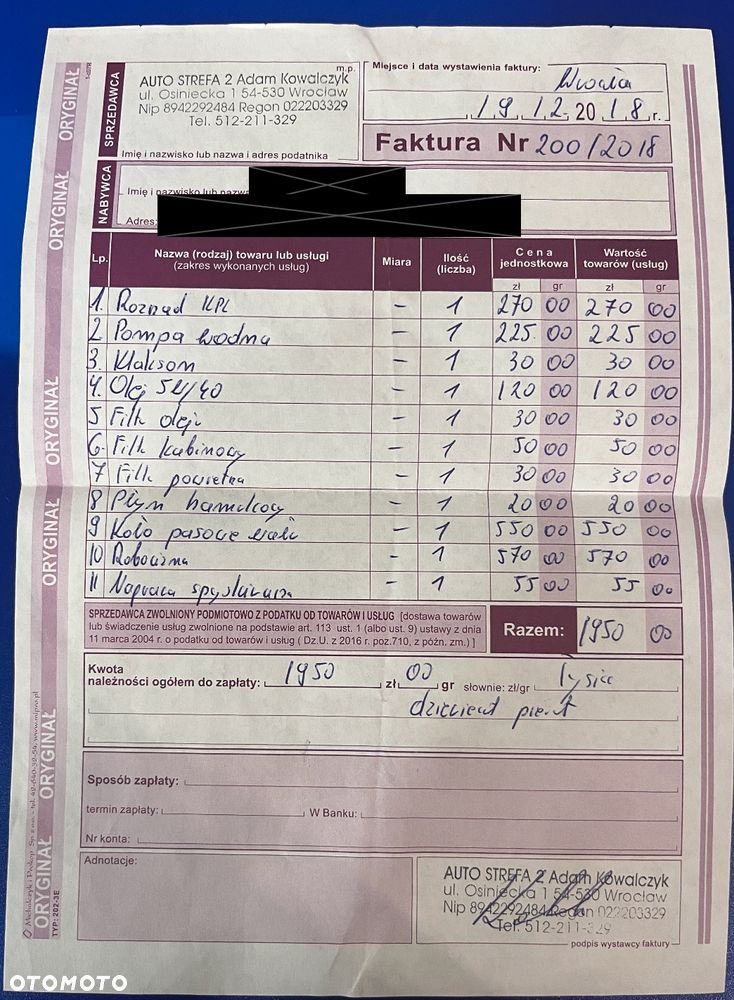 m.p.
SPRZEDAWCA
AUTO STREFA 2 Adam Kowalczyk
ul. Osiniecka 1 54-530 Wrocław
Nip 8942292484 Regon 022203329
Tel. 512-211-329
Imię i nazwisko lub nazwa i adres podatnika
Miejsce i data wystawienia faktury:
19 12 20 18 r.
Faktura Nr 200/2018
NABYWCA
Imię i nazwisko lub nazwa
Adres:
Lp. Nazwa (rodzaj) towaru lub usługi (zakres wykonanych usług) Miara Ilość (liczba) Cena jednostkowa Wartość towarów (usług)
zł gr zł gr
1. Rozrząd KPL – 1 270 00 270 00
2 Pompa wodna – 1 225 00 225 00
3. Klakson – 1 30 00 30 00
4. Olej 5W/40 – 1 120 00 120 00
5 Filtr oleju – 1 30 00 30 00
6 Filtr kabinowy – 1 50 00 50 00
7 Filtr powietrza – 1 30 00 30 00
8 Płyn hamulcowy – 1 20 00 20 00
9 Koło pasowe wału – 1 550 00 550 00
10 Robocizna – 1 570 00 570 00
11 Naprawa spryskiwacza – 1 55 00 55 00
SPRZEDAWCA ZWOLNIONY PODMIOTOWO Z PODATKU OD TOWARÓW I USŁUG [dostawa towarów
lub świadczenie usług zwolnione na podstawie art. 113 ust. 1 (albo ust. 9) ustawy z dnia
11 marca 2004 r. o podatku od towarów i usług ( Dz.U. z 2016 r. poz.710, z późn. zm.) ]
Razem: 1950 00
Kwota
należności ogółem do zapłaty: 1950 zł 00 gr słownie: zł/gr tysiąc
dziewięćset pięćdziesiąt
Sposób zapłaty:
termin zapłaty: W Banku:
Nr konta:
Adnotacje:
AUTO STREFA 2 Adam Kowalczyk
ul. Osiniecka 1 54-530 Wrocław
Nip 8942292484 Regon 022203329
Tel. 512-211-329
podpis wystawcy faktury
ORYGINAŁ
ORYGINAŁ
ORYGINAŁ
ORYGINAŁ
ORYGINAŁ
ORYGINAŁ
TYP: 202-3E
OTOMOTO